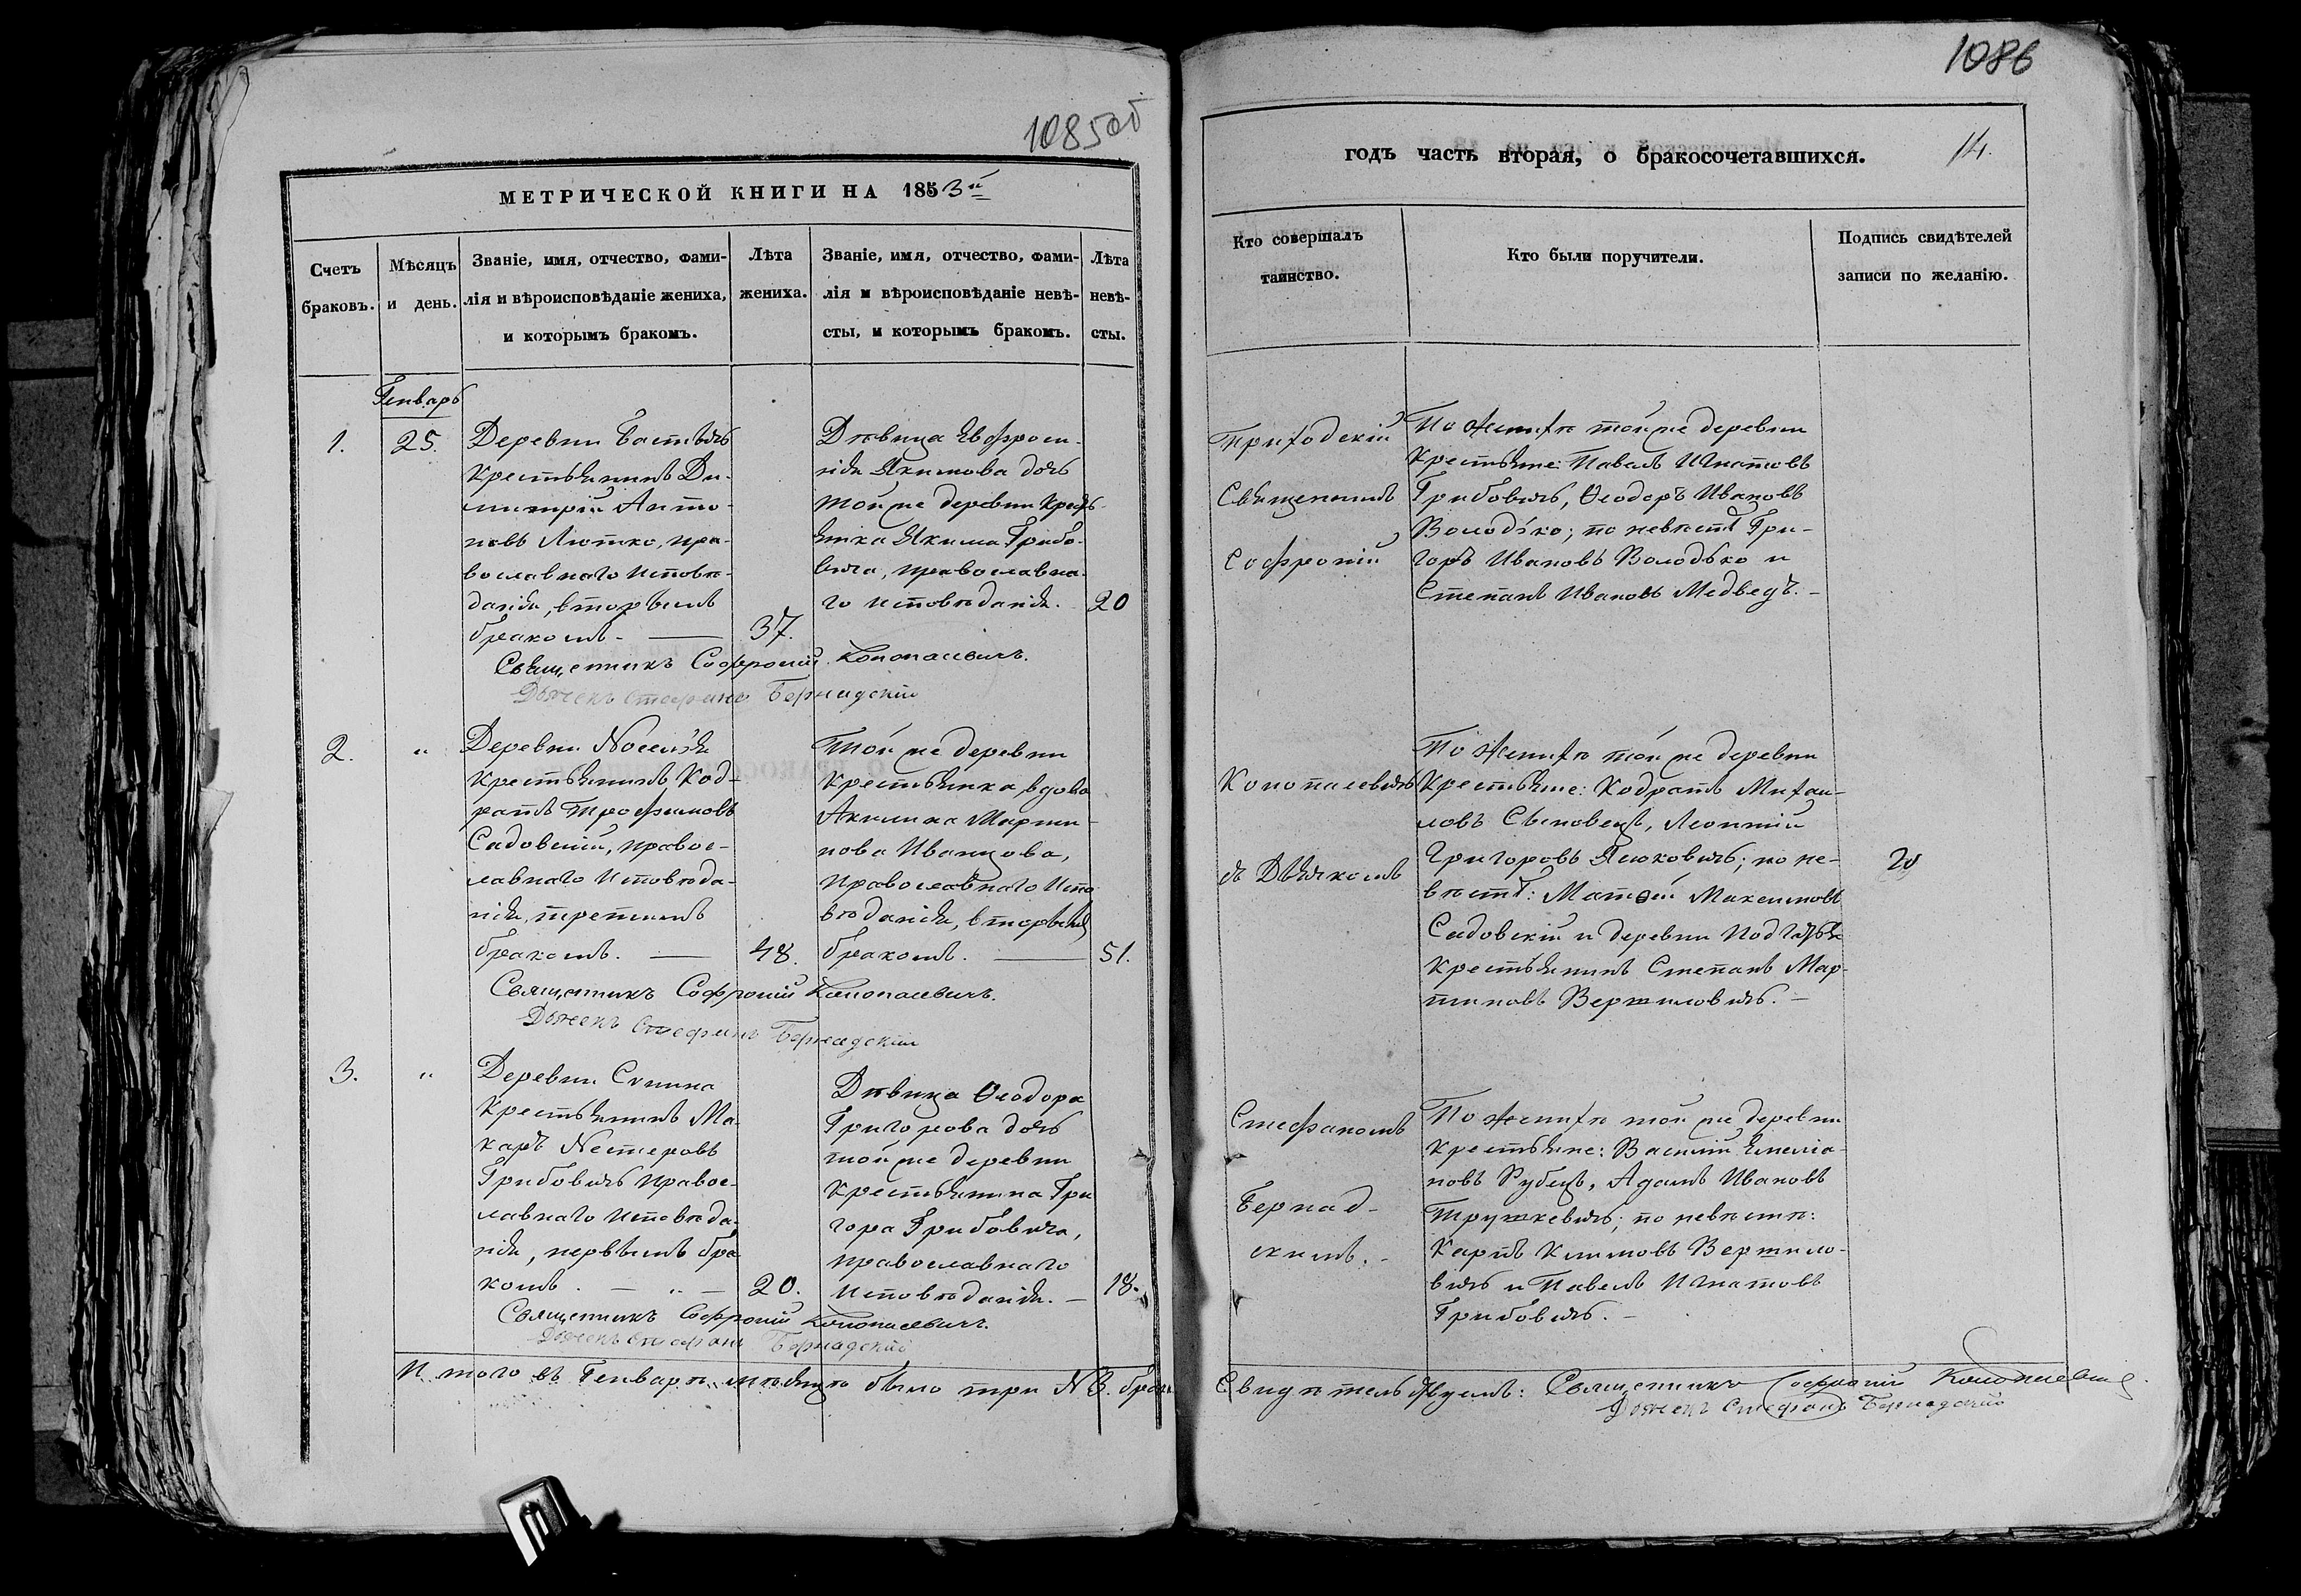 1085об
МЕТРИЧЕСКОЙ КНИГИ НА 1853й
Счетъ браковъ.
Мѣсяцъ и день.
Званіе, имя, отчество, фами-
лія и вѣроисповѣданіе жениха,
и которымъ бракомъ.
Лѣта жениха.
Званіе, имя, отчество, фами-
лія и вѣроисповѣданіе невѣ-
сты, и которымъ бракомъ.
Лѣта невѣ-
сты.
Генварь
1.
25.
Деревни
крестьянинъ Ди-
митрій Анто-
новъ Лютко, пра-
вославнаго исповѣ-
данія, вторымъ
бракомъ. —
37.
Дѣвица Евфроси-
нія Якимова дочь
той же деревни кресть-
янина Якима Грибо-
вича, православна-
го исповѣданія.
20
Священникъ Софроній Конопасевичъ.
Дьячекъ Стефанъ Бернадскій
2.
"
Деревни
крестьянинъ Код-
ратъ Трофимовъ
Садовскій, правос-
лавнаго исповѣда-
нія, третьимъ
бракомъ. —
48.
Той же деревни
крестьянка вдова
Акилина Марти-
нова Иванцова,
православнаго испо-
вѣданія, вторымъ
бракомъ. —
51.
Священникъ Софроній Конопасевичъ.
Дьячекъ Стефанъ Бернадскій
3.
"
Деревни
крестьянинъ Ма-
каръ Нестеровъ
Грибовичъ правос-
лавнаго исповѣда-
нія, первымъ бра-
комъ. — " —
20.
Дѣвица Ѳеодора
Григорова дочь
той же деревни
крестьянина Гри
гора Грибовича,
православнаго
исповѣданія. —
18.
Священникъ Софроній Конопасевичъ.
Дьячекъ Стефанъ Бернадскій
Итого въ Генварѣ мѣсяцѣ было три №3. брака
1086
годъ часть вторая, о бракосочетавшихся.
14.
Кто совершалъ
таинство.
Кто были поручители.
Подпись свидѣтелей
записи по желанію.
Приходскій
Священникъ
Софроній
Конопасевичъ
съ Дьячкомъ
Стефаномъ
Бернад-
скимъ. -
По женихѣ той же деревни
крестьяне: Павелъ Игнатовъ
Грибовичъ, Ѳеодоръ Ивановъ
Володько; по невѣстѣ Гри-
горъ Ивановъ Володько и
Степанъ Ивановъ Медведъ. -
По женихѣ той же деревни
крестьяне: Кодратъ Михаи-
ловъ Леонтій
Григоровъ по не-
вѣстѣ: Матѳей Максимовъ
Садовскій и деревни
крестьянинъ Степанъ Мар-
тиновъ Вертиловичъ. —
По женихѣ той же деревни
крестьяне: Василій Емелія-
новъ Рубецъ, Адамъ Ивановъ
Трушкевичъ; по невѣстѣ:
Карпъ Климовъ Вертило-
вичъ и Павелъ Игнатовъ
Грибовичъ. —
Свидѣтельствуемъ: Священникъ Софроній Конопасевичъ.
Дьячекъ Стефанъ Бернадскій